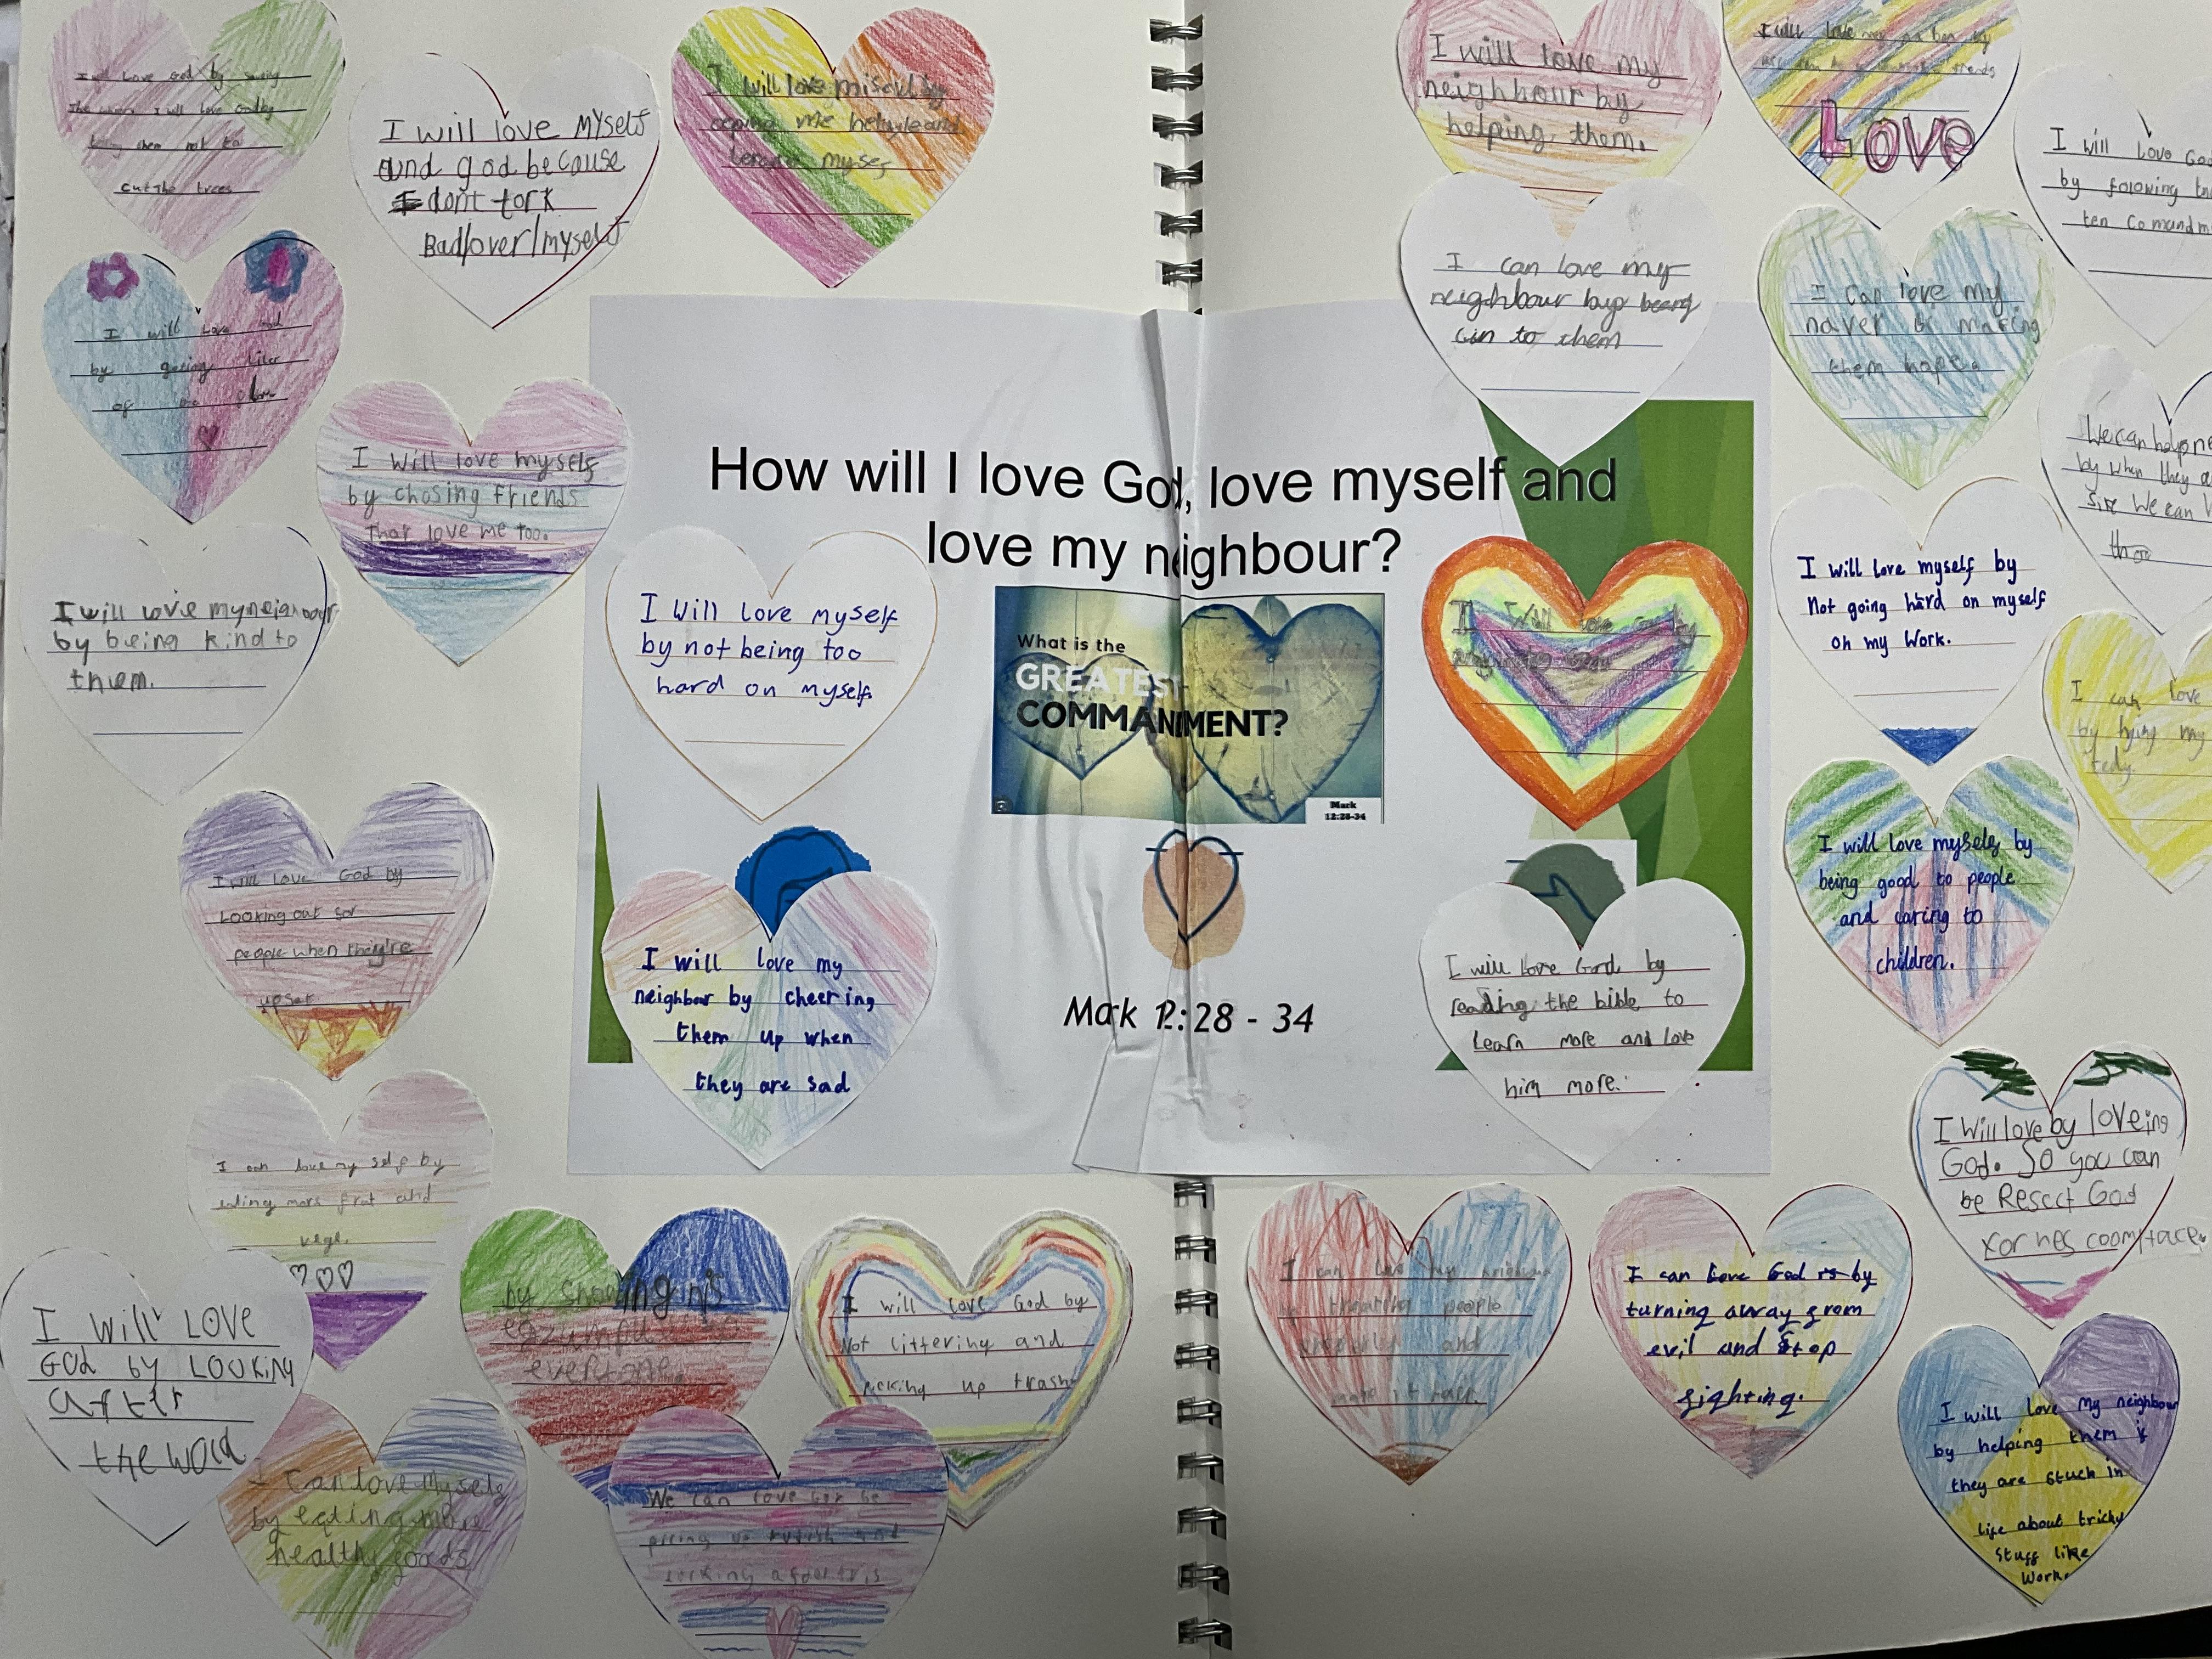 I will love God by saving
the I will love God by
them not to
cut the trees
I will love Myself
and god because
I dont tork
Bad/over/myself
I will love miself by
me helfy and
myself
I will love God
by geting liter
of the
I will love myself
by chosing friends
that love me too.
I will love my neighbour
by being kind to
them.
I will love myself
by not being too
hard on myself.
I will love God by
Looking out for
people when they're
upset
I will love my
neighbour by cheering
them up when
they are sad
I can love my self by
eating more frut and
vege.
I will LOVE
God by LOOKING
after
the world
I can love Myself
by eating more
healthy foods
by showing his
everyone
I will love God by
Not littering and
picking up trash
We can love God be
up rubish and
How will I love God, love myself and
love my neighbour?
What is the
GREATEST
COMMANMENT?
Mark
12:28-34
Mark 12:28 - 34
I will love my
neighbour by
helping them.
I will love my
friends
LOVE
I will love God
by folowing the
ten comandm
I can love my
neighbour buy being
cin to them
I can love my
naver by making
them happ
We can help
by when they
We can
I will love myself by
Not going hard on myself
on my Work.
I will love
I can love
by my
tedy.
I will love myself by
being good to people
and caring to
children.
I will love God by
reading the bible to
Learn more and love
him more.
I Will love by loveing
God. So you can
be Resect God
I can love my
by people
and
make it fair.
I can love God is by
turning away from
evil and Stop
fighting.
I will love My neighbour
by helping them if
they are stuck in
life about tricky
stuff like
Work.